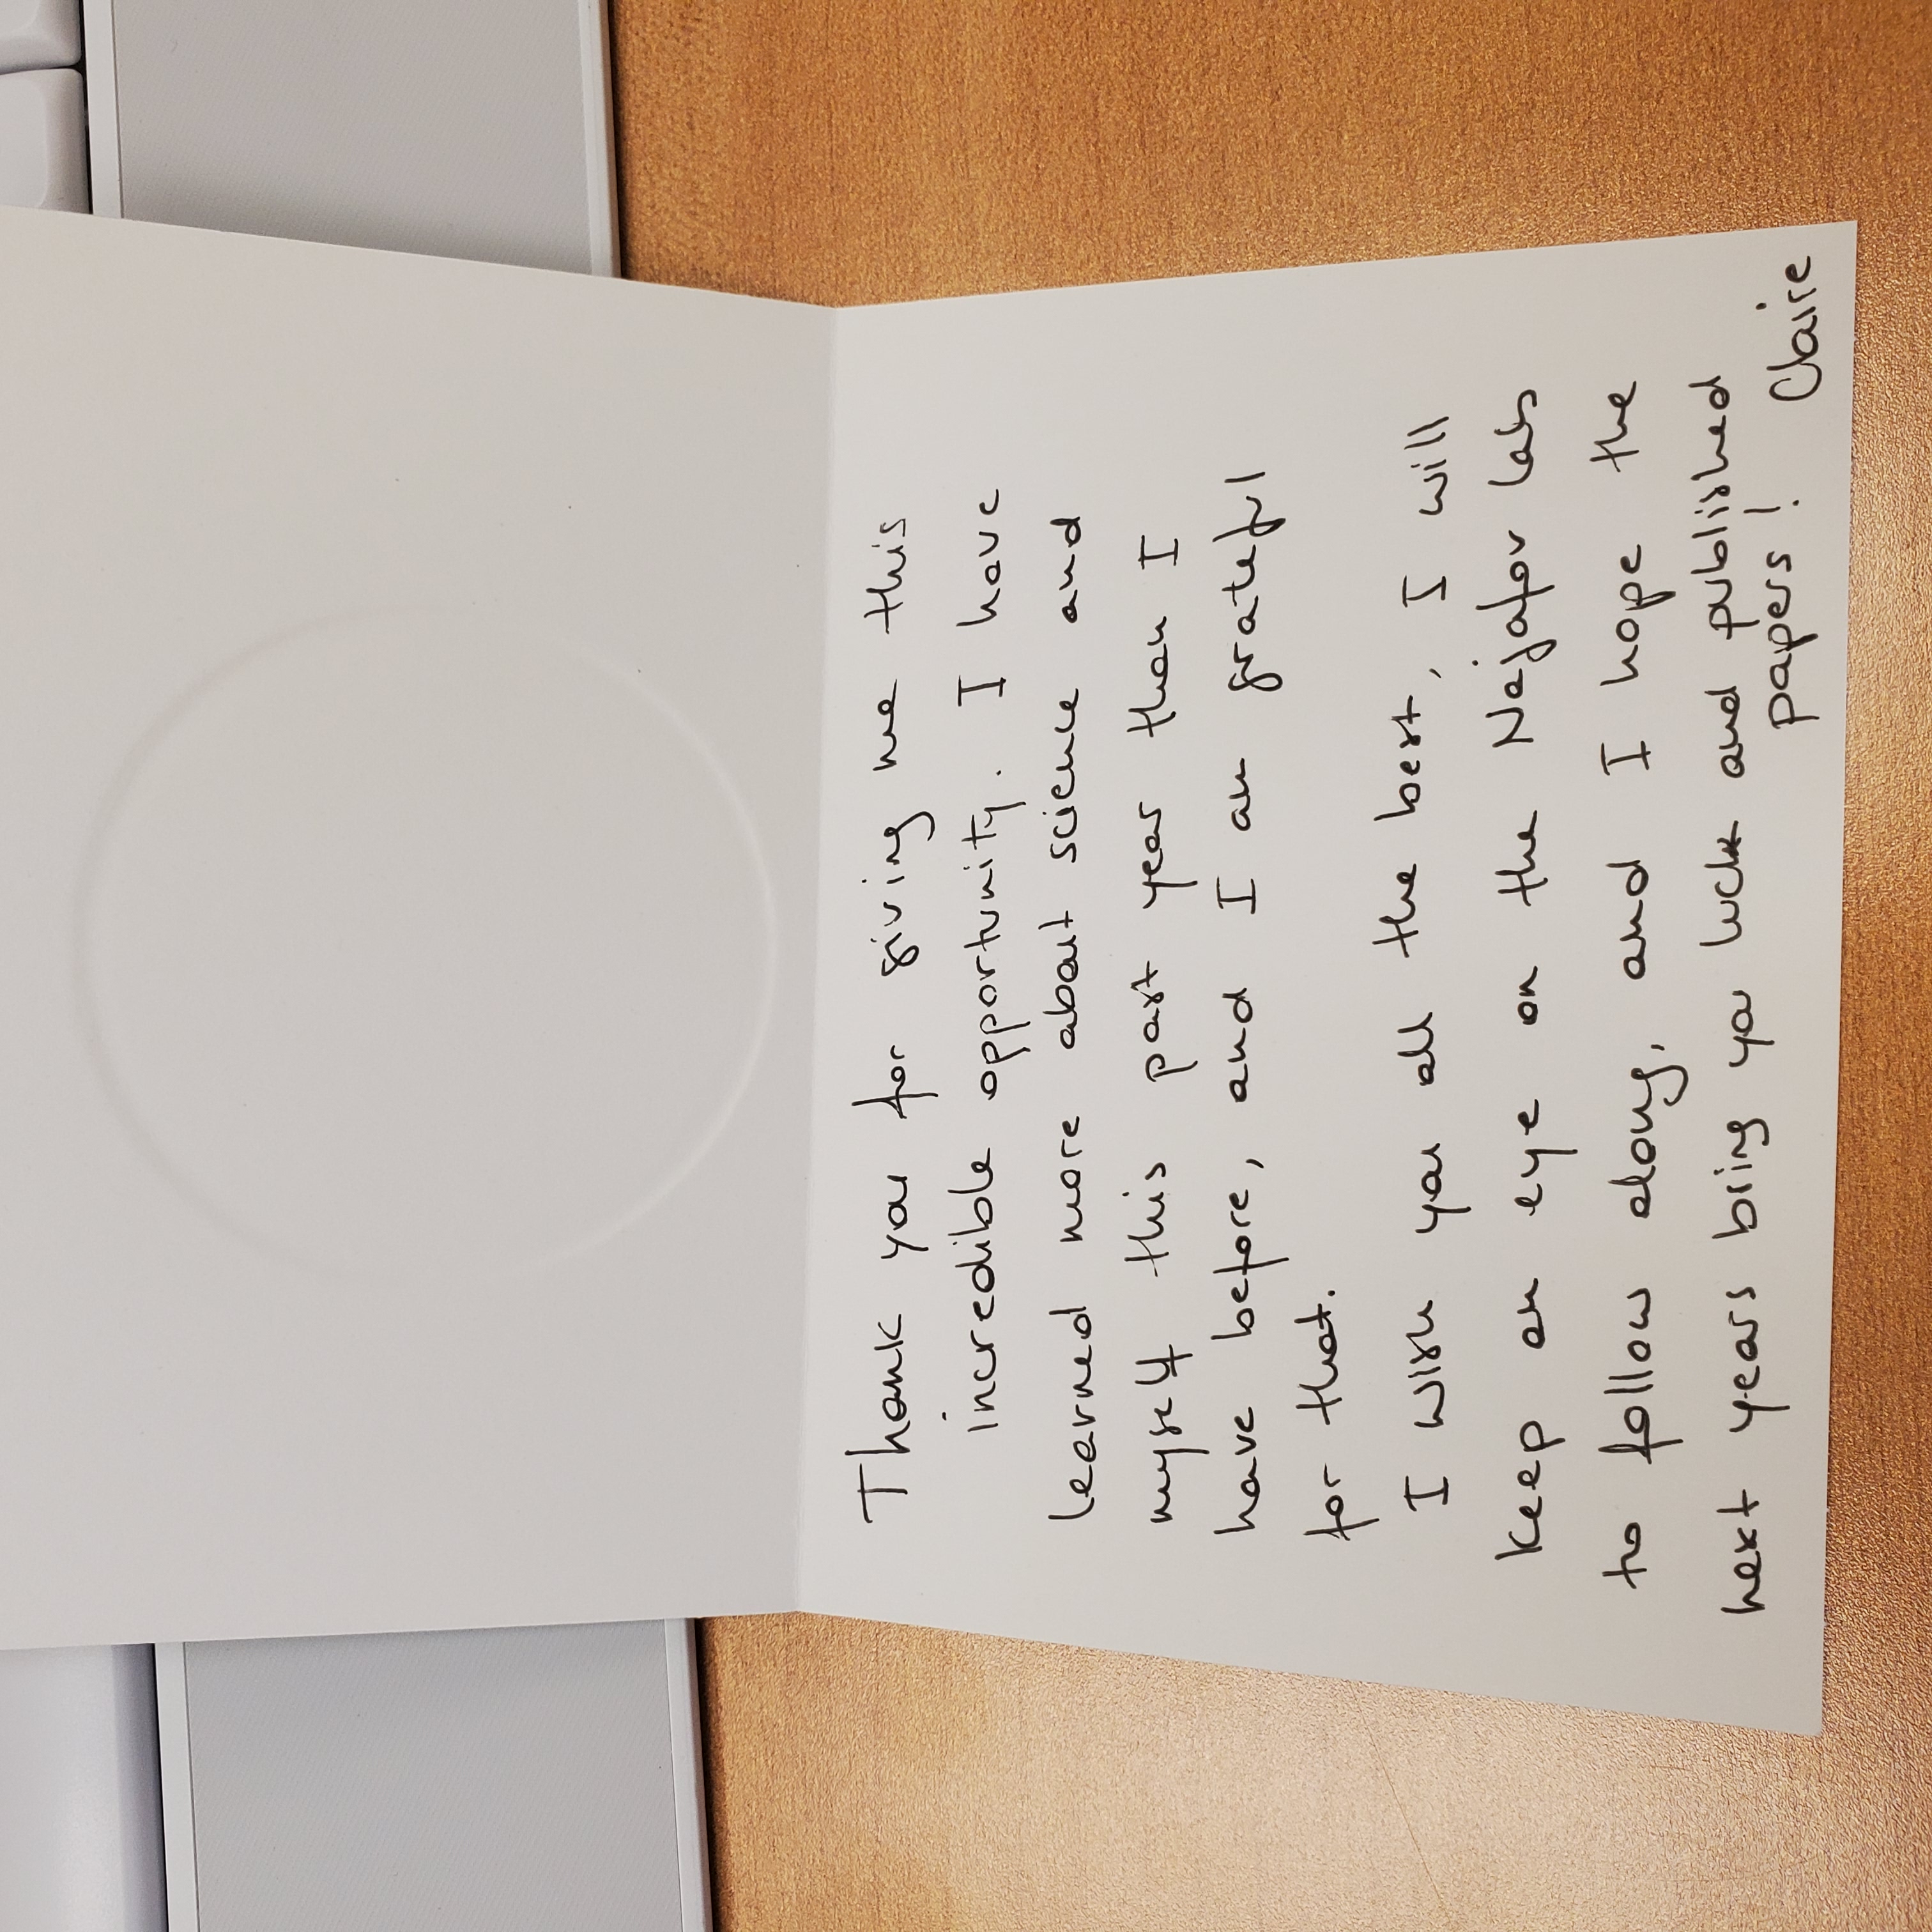 Thank you for giving me this
incredible opportunity. I have
learned more about science and
myself this past year than I
have before, and I am grateful
for that.
I wish you all the best, I will
keep an eye on the Najafov lab
to follow along, and I hope the
next years bring you luck and published
papers! Claire